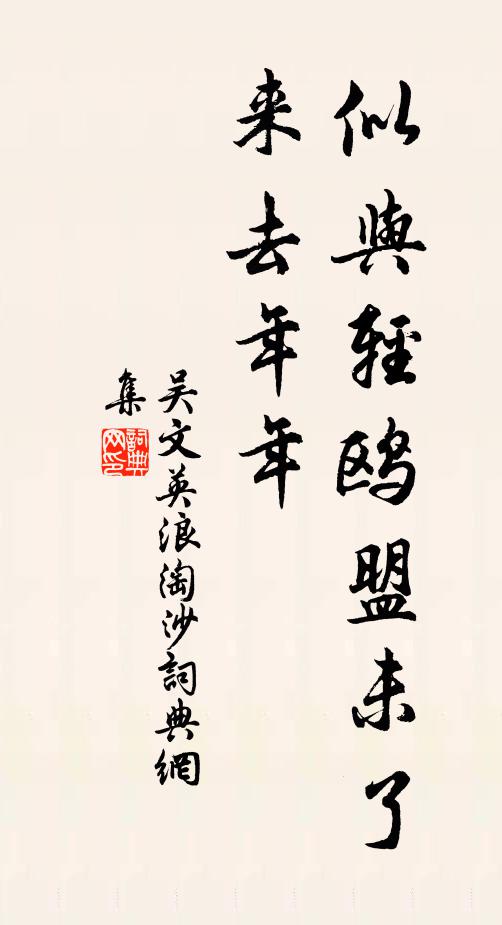 似與輕鷗盟未了
来去年年
吴文英浪淘沙詞典網
集
詞典网印